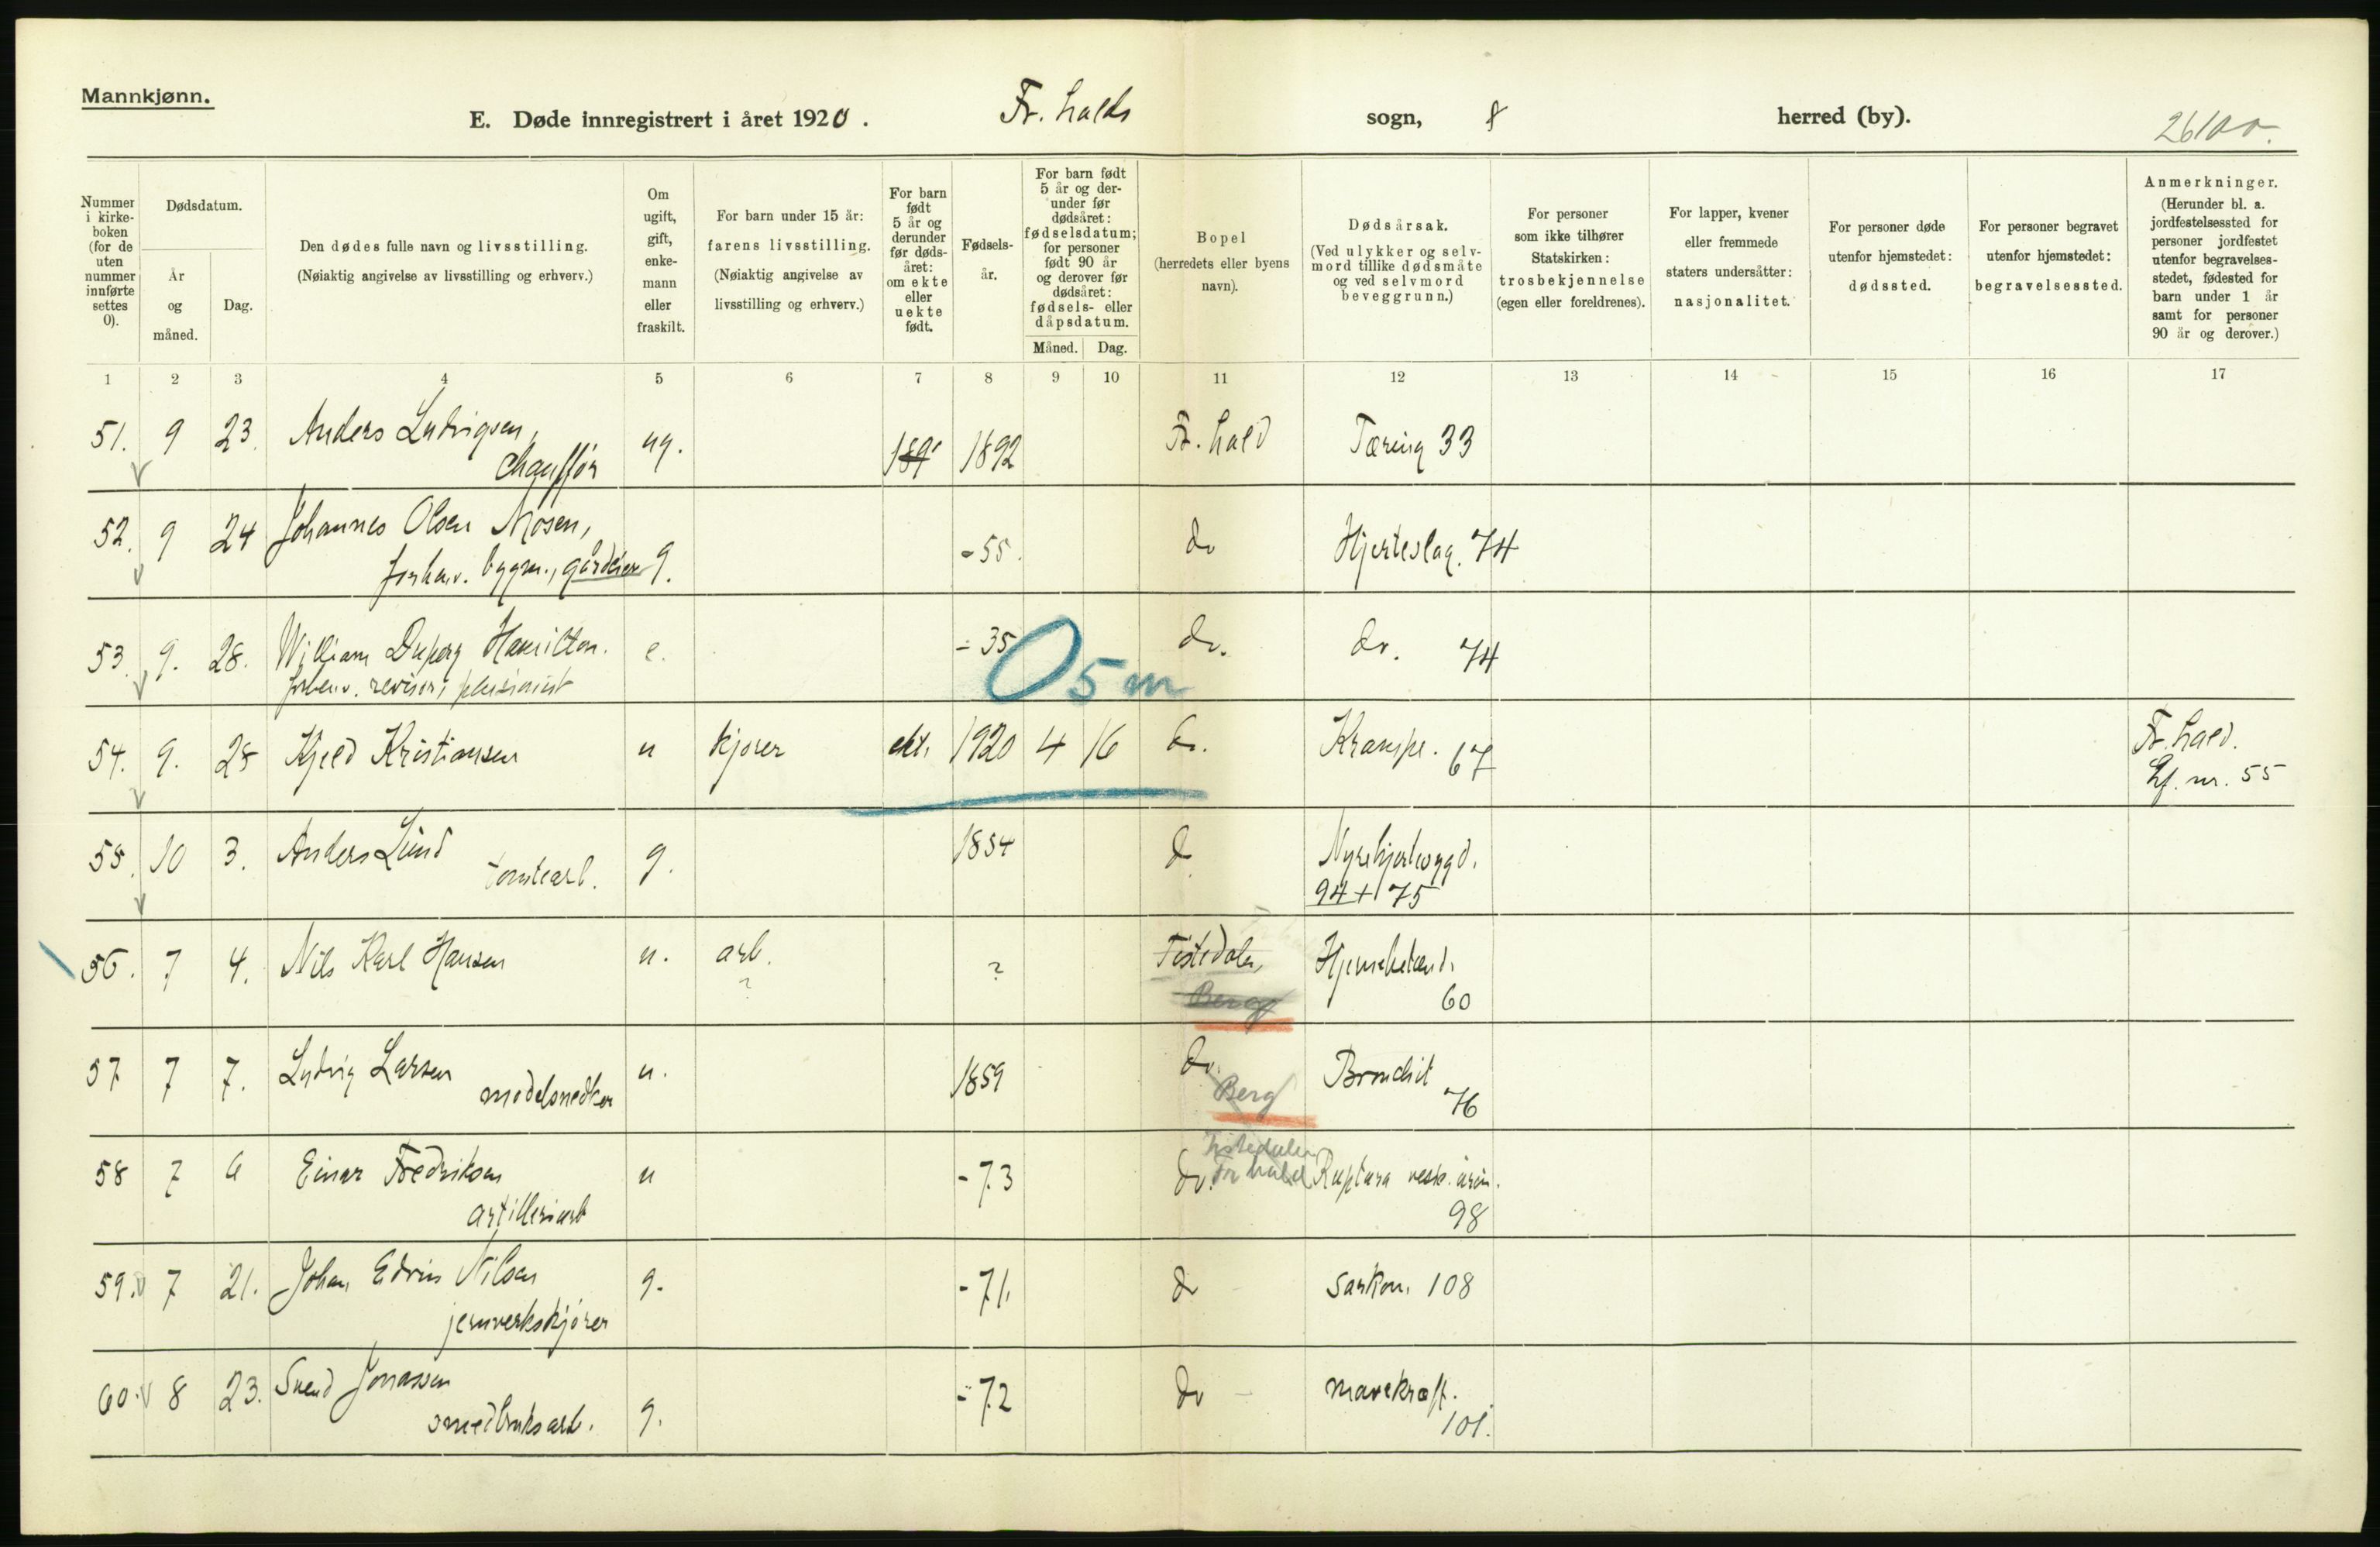 Mannkjønn.
E. Døde innregistrert i året 1920. Fr.halds sogn, herred (by). 26100.
Nummer i kirke-boken (for de uten nummer innførte settes 0).
Dødsdatum.
År og måned.
Dag.
Den dødes fulle navn og livsstilling.
(Nøiaktig angivelse av livsstilling og erhverv.)
Om ugift, gift, enke-mann eller fraskilt.
For barn under 15 år:
farens livsstilling.
(Nøiaktig angivelse av livsstilling og erhverv.)
For barn født 5 år og derunder før døds-året: om ekte eller uekte født.
Fødsels-år.
For barn født 5 år og der-under før dødsåret: fødselsdatum; for personer født 90 år og derover før dødsåret: fødsels- eller dåpsdatum.
Måned. Dag.
Bopel
(herredets eller byens navn).
Dødsårsak.
(Ved ulykker og selv-mord tillike dødsmåte og ved selvmord beveggrunn.)
For personer som ikke tilhører Statskirken:
trosbekjennelse
(egen eller foreldrenes).
For lapper, kvener eller fremmede staters undersåtter:
nasjonalitet.
For personer døde utenfor hjemstedet:
dødssted.
For personer begravet utenfor hjemstedet:
begravelsessted.
Anmerkninger.
(Herunder bl. a. jordfestelsessted for personer jordfestet utenfor begravelses-stedet, fødested for barn under 1 år samt for personer 90 år og derover.)
1 2 3 4 5 6 7 8 9 10 11 12 13 14 15 16 17
51. 9 23. Anders Ludvigsen, ug. 189 1892 Fr.hald Tæring 33
chauffør
52. 9 24 Johannes Olsen Mosen, g. -55. do Hjerteslag. 74
forhenv. bygm., gårdeier
53 9. 28. William Hamilton. e. -35 do. do. 74
forhenv. revisor, pensionist
O 5 m
54. 9. 28 Kjeld Kristiansen u kjører ekt. 1920 4 16 do. Krampe. 67 Fr.hald.
Lf. nr. 55
55. 10 3. Anders Lund g. 1854 do
tomtearb. 94+75
56. 7 4. Nils Karl Hansen u. arb. ? ? Tistedalen, Hjernebetænd.
Berg 60
57 7 7. Ludvig Larsen u. 1859 do. Bronchit
modelsnedker Berg 76
Tistedalen
58 7 6 Einar Fredriksen u -73 do. Fr hald Ruptura vesic. urin.
artilleriarb 98
59. 7 21. Johan Edvin Nilsen g. -71. do Sarkom. 108
jernverkskjører
60. 8 23. Svend Jonassen g. -72 do mavekræft.
smedbruksarb. 101.